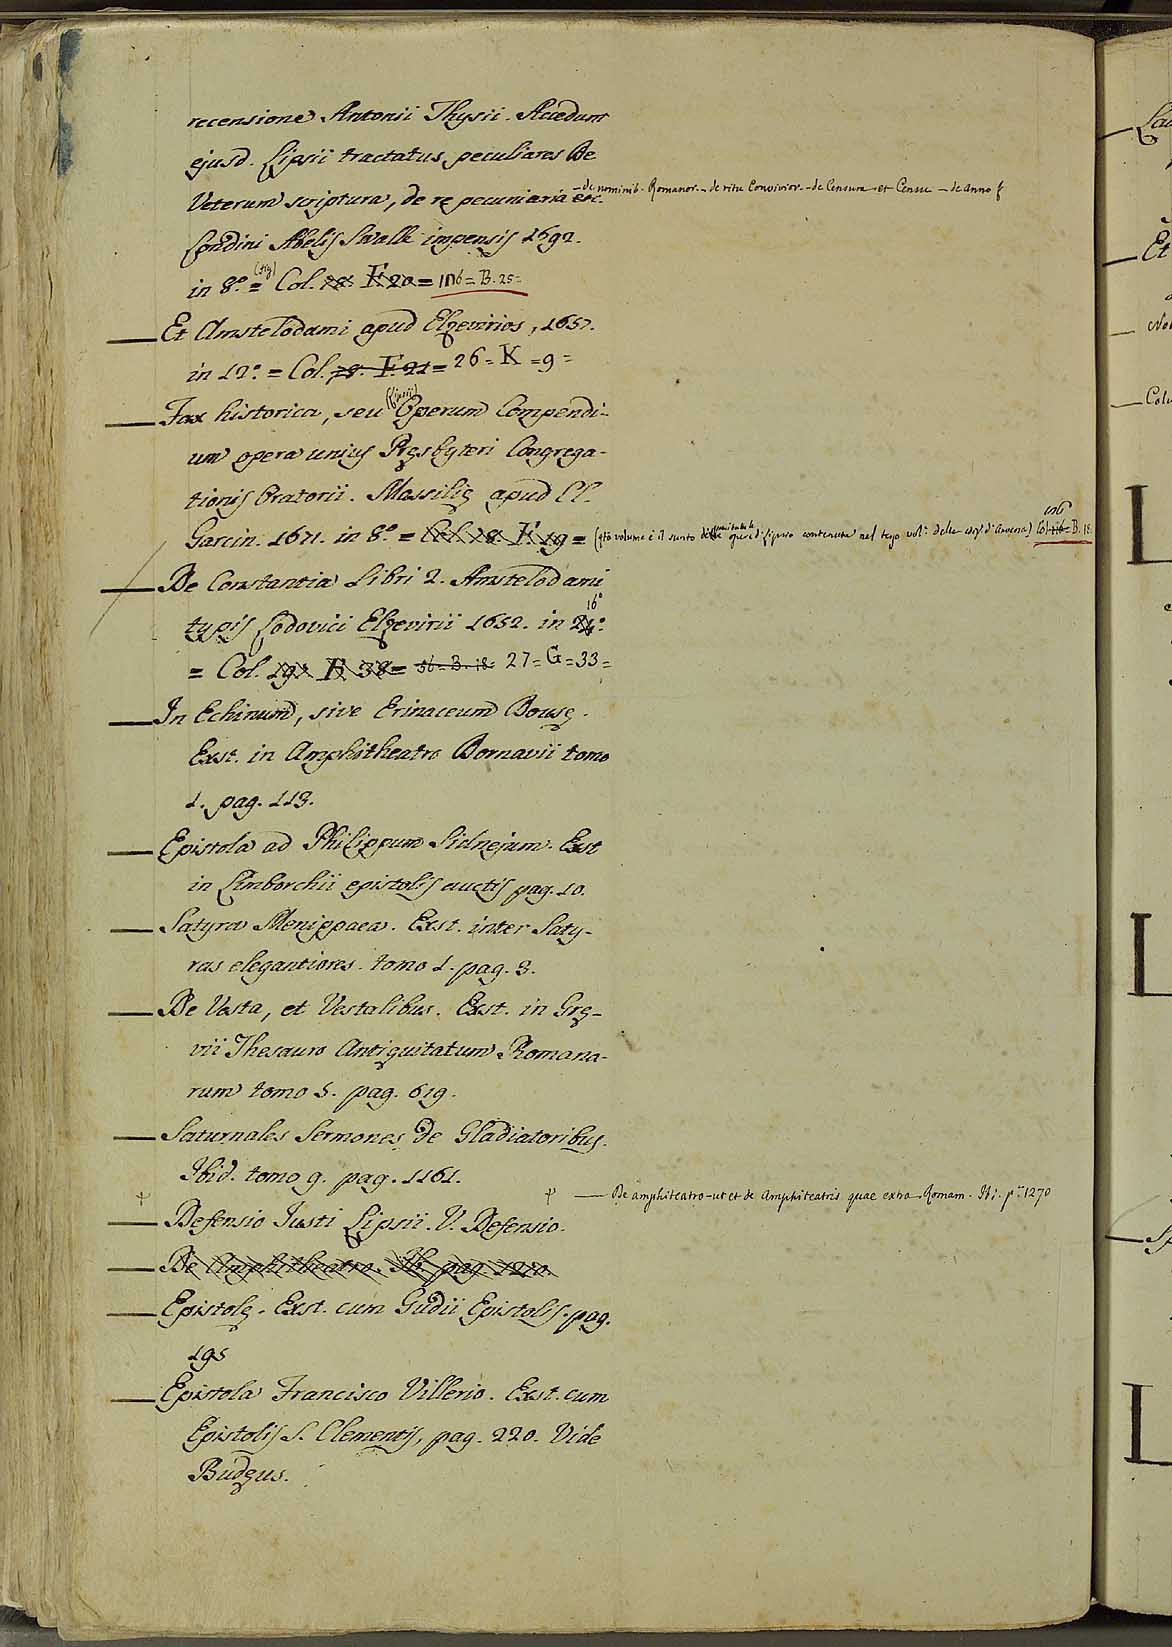 recensione Antonii Thysii. Accedunt
ejusd. Lipsii tractatus peculiares De
Veterum scriptura, de re pecuniaria etc. – de nominib. Romanor. – de ritu Convivior. – de Censura et Censu – de anno
Londini Abelis Swalle impensis 1692.
in 8.° = (fig) Col. 28. F. 20 = 106 = B. 25 =
— Et Amstelodami apud Elzevirios, 1657.
in 12.° = Col. 28. F. 21 = 26 = K = 9 =
— Fax historica, seu Operum Compendi-
um opera unius Pręsbyteri Congrega-
tionis Oratorii. Massilię apud Cl.
Garcin. 1671. in 8.° = Col. 28. F. 19 = (qto volume è il sunto delle opere di Lipsio contenute nel terzo vol. delle d'Anversa) Col. B. 18.
— De Constantia Libri 2. Amstelodami
typis Lodovici Elzevirii 1652. in 24.° 16°
= Col. 191 F. 38 = 56 = B. 18 = 27 = G = 33 =
— In Echinum, sive Erinaceum Bousę.
Exst. in Amphitheatro Dornavii tomo
1. pag. 113.
— Epistola ad Philippum Sidnejum. Exst
in Limborchii epistolis auctis pag. 10.
— Satyra Menippaea. Exst. inter Saty-
ras elegantiores. tomo 1. pag. 3.
— De Vesta, et Vestalibus. Exst. in Grę-
vii Thesauro Antiquitatum Romana-
rum tomo 5. pag. 619.
— Saturnales Sermones de Gladiatoribus.
Ibid. tomo 9. pag. 1161.
— De amphiteatro – ut et de Amphiteatris quae extra Romam. Ibi. p. 1270
— Defensio Justi Lipsii. V. Defensio.
— De Amphitheatro. Ib. pag. 1270.
— Epistolę. Exst. cum Gudii Epistolis. pag.
195
— Epistola Francisco Villerio. Exst. cum
Epistolis S. Clementis, pag. 220. Vide
Budęus.